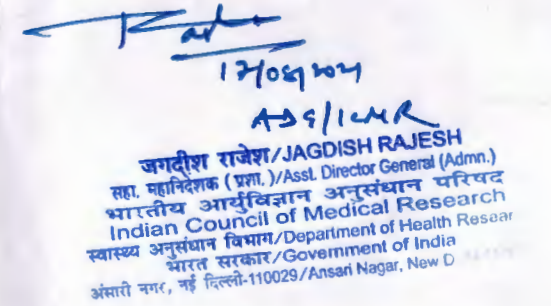 ADG/ICMR
जगदीश राजेश/JAGDISH RAJESH
सहा. महानिदेशक (प्रशा.)/Asst. Director General (Admn.)
भारतीय आर्युविज्ञान अनुसंधान परिषद
Indian Council of Medical Research
स्वास्थ्य अनुसंधान विभाग/Department of Health Resear
भारत सरकार/Government of India
अंसारी नगर, नई दिल्ली-110029/Ansari Nagar, New D